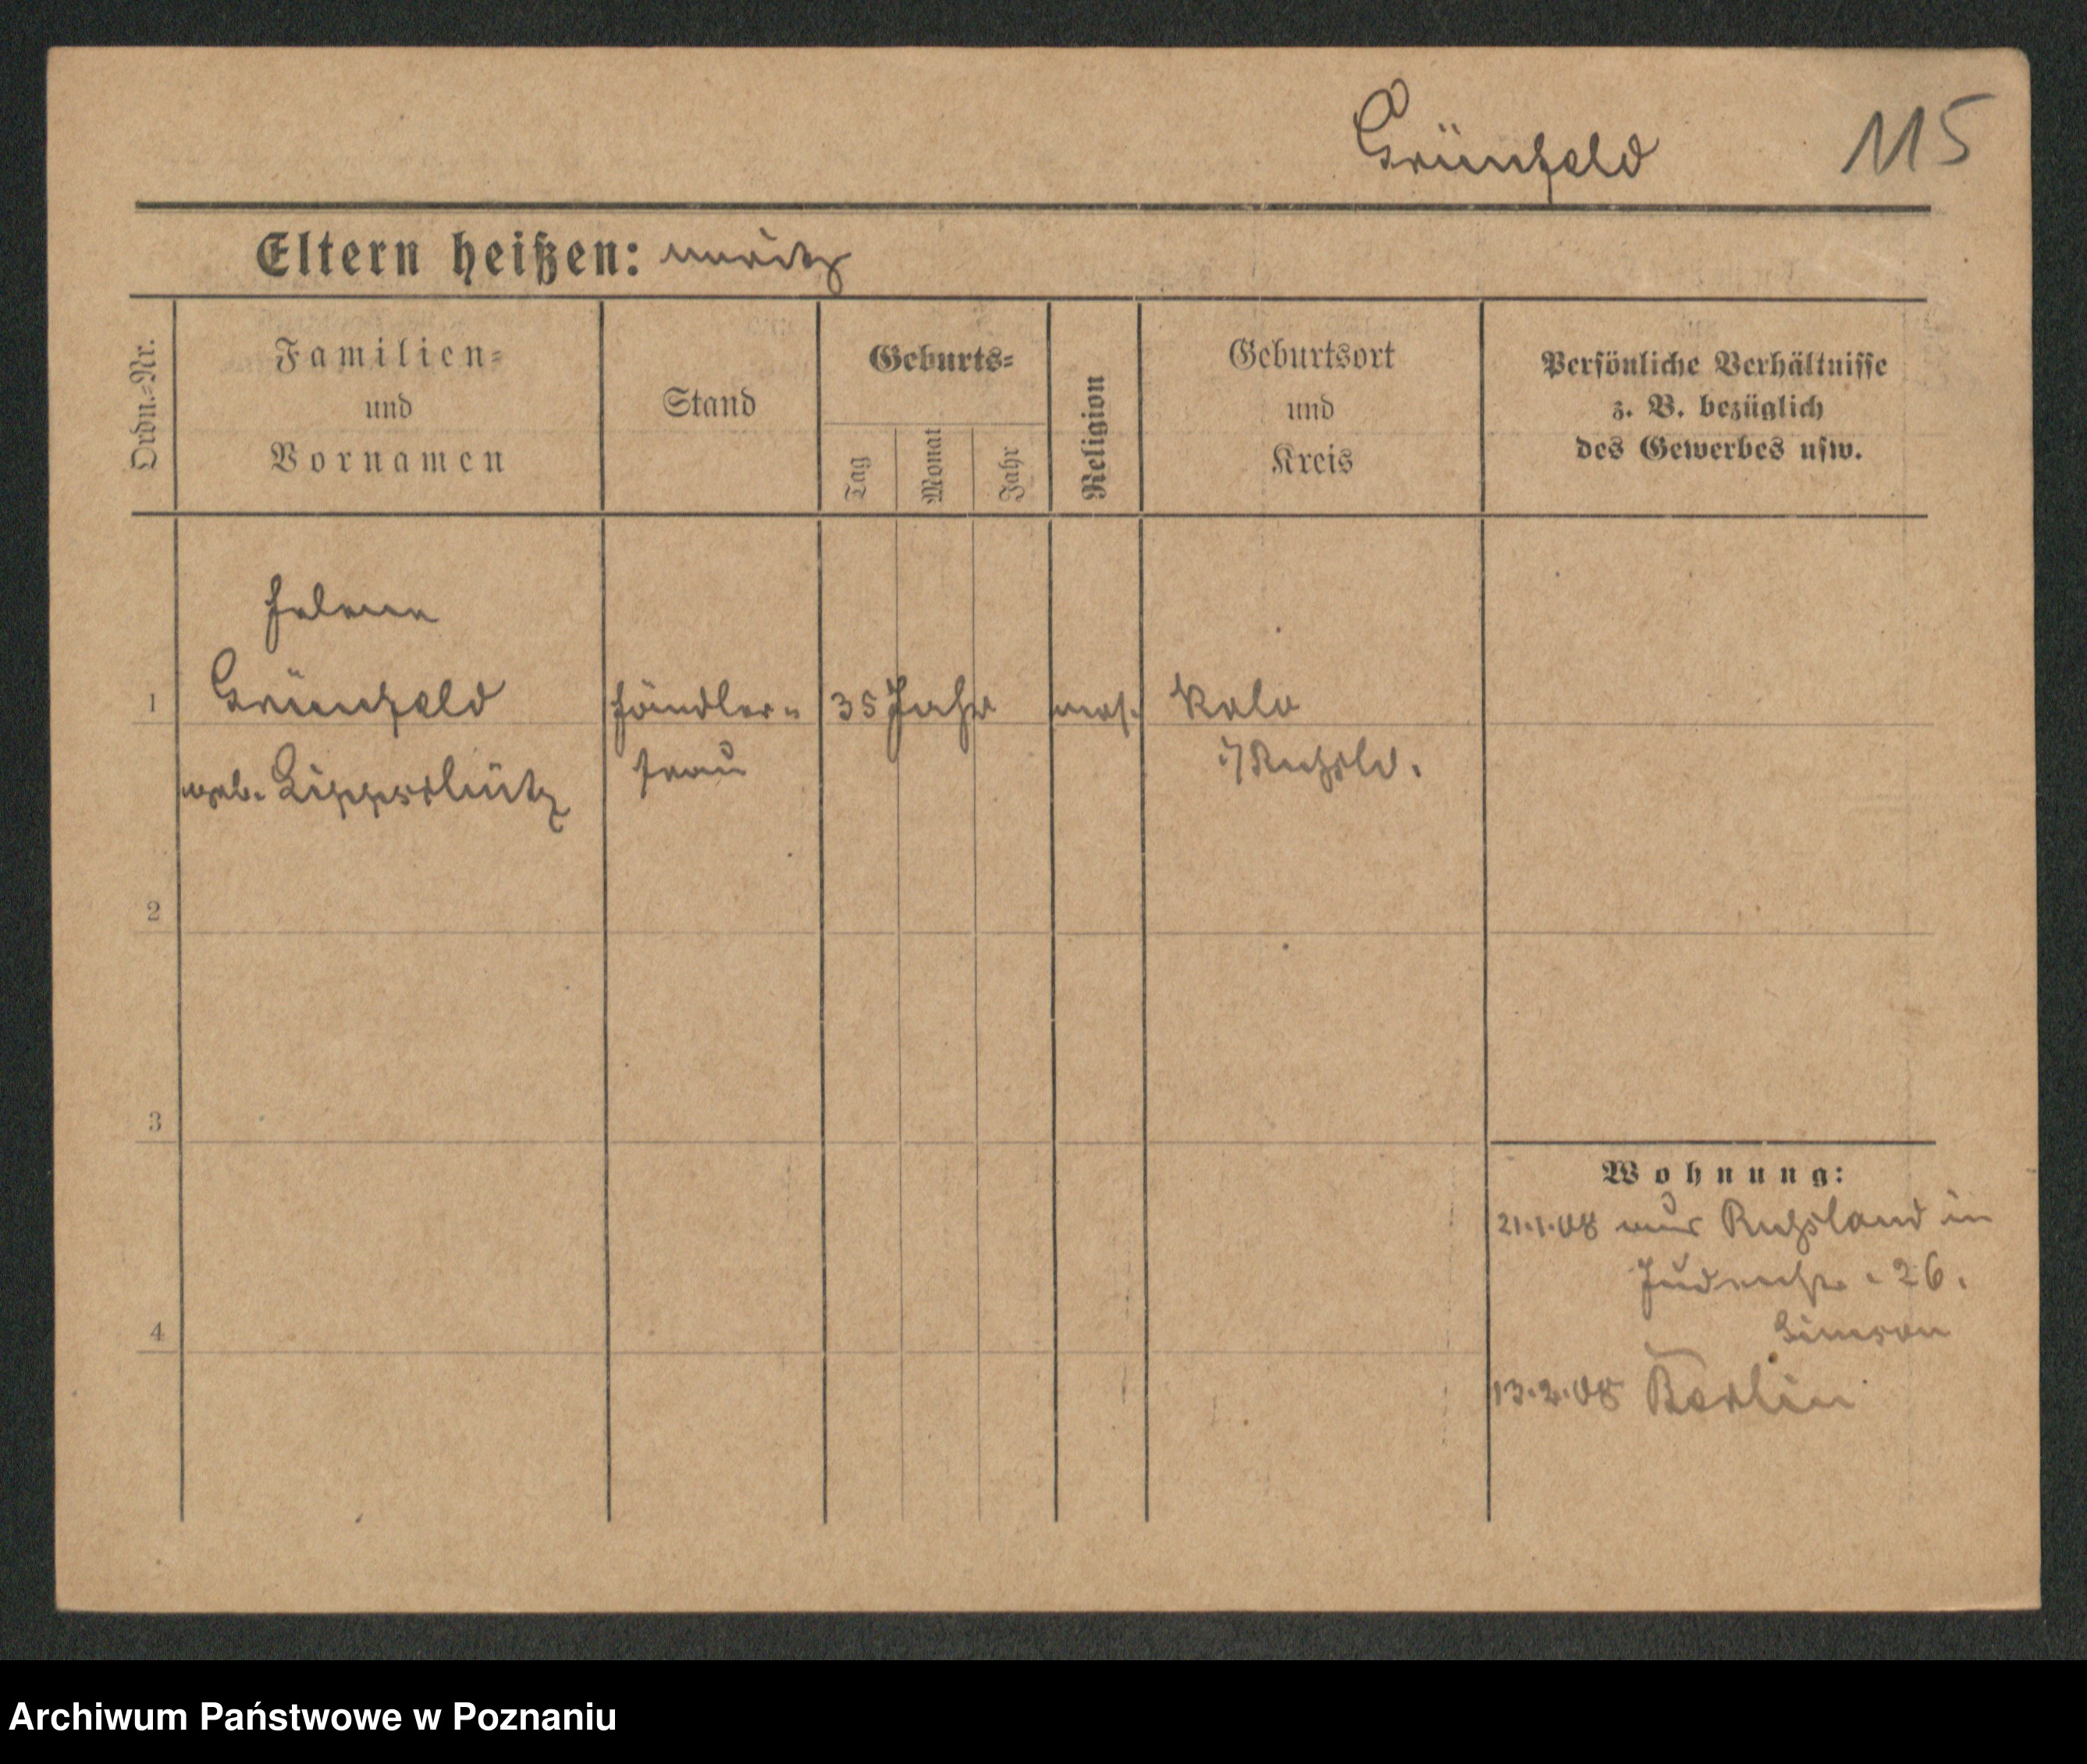 Grünfeld 115
Eltern heißen: Moritz
Ordn.-Nr.
Familien-
und
Vornamen
Stand
Geburts-
Tag
Monat
Jahr
Religion
Geburtsort
und
Kreis
Persönliche Verhältnisse
z. B. bezüglich
des Gewerbes usw.
Helene
1 Grünfeld Händler- 35 Jahr mos. Kolo
geb. frau i/Rußld.
2
3
4
Wohnung:
21.1.08 aus Rußland in
Judenstr. 26.
Simson
13.2.08 Berlin
Archiwum Państwowe w Poznaniu